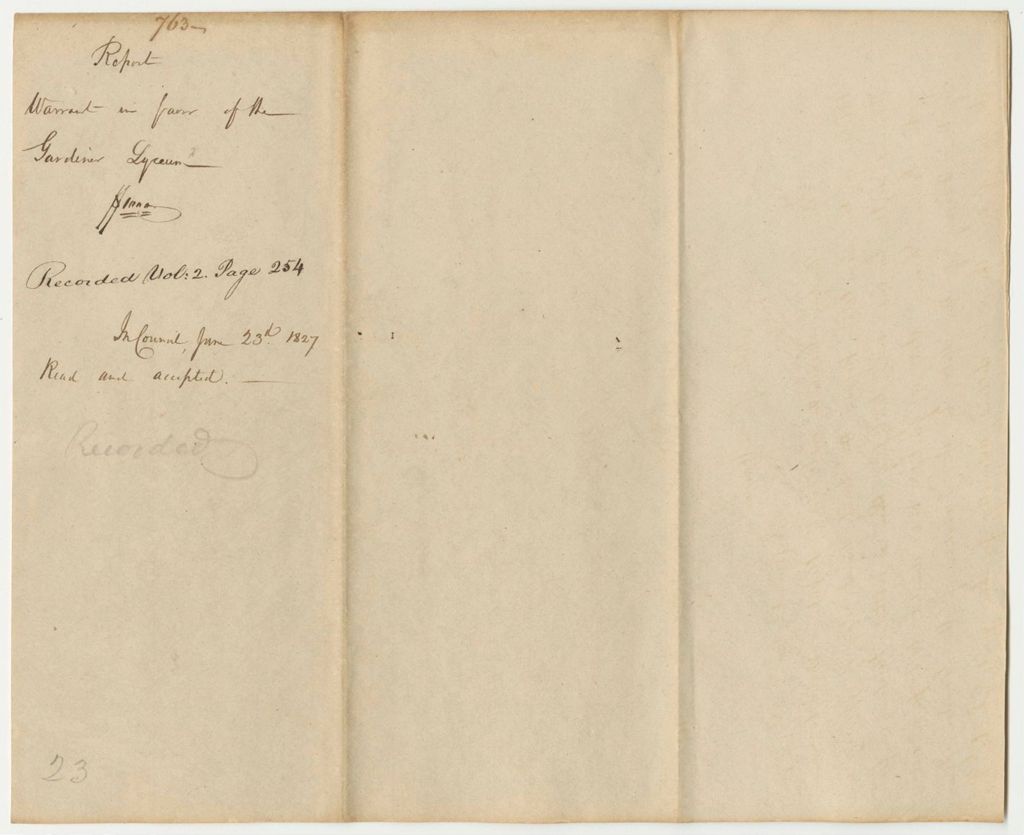 763
Report
Warrant in favor of the
Gardiner Lyceum
Recorded Vol: 2. Page 254
In Council, June 23d. 1827
Read and accepted.
Recorded
23